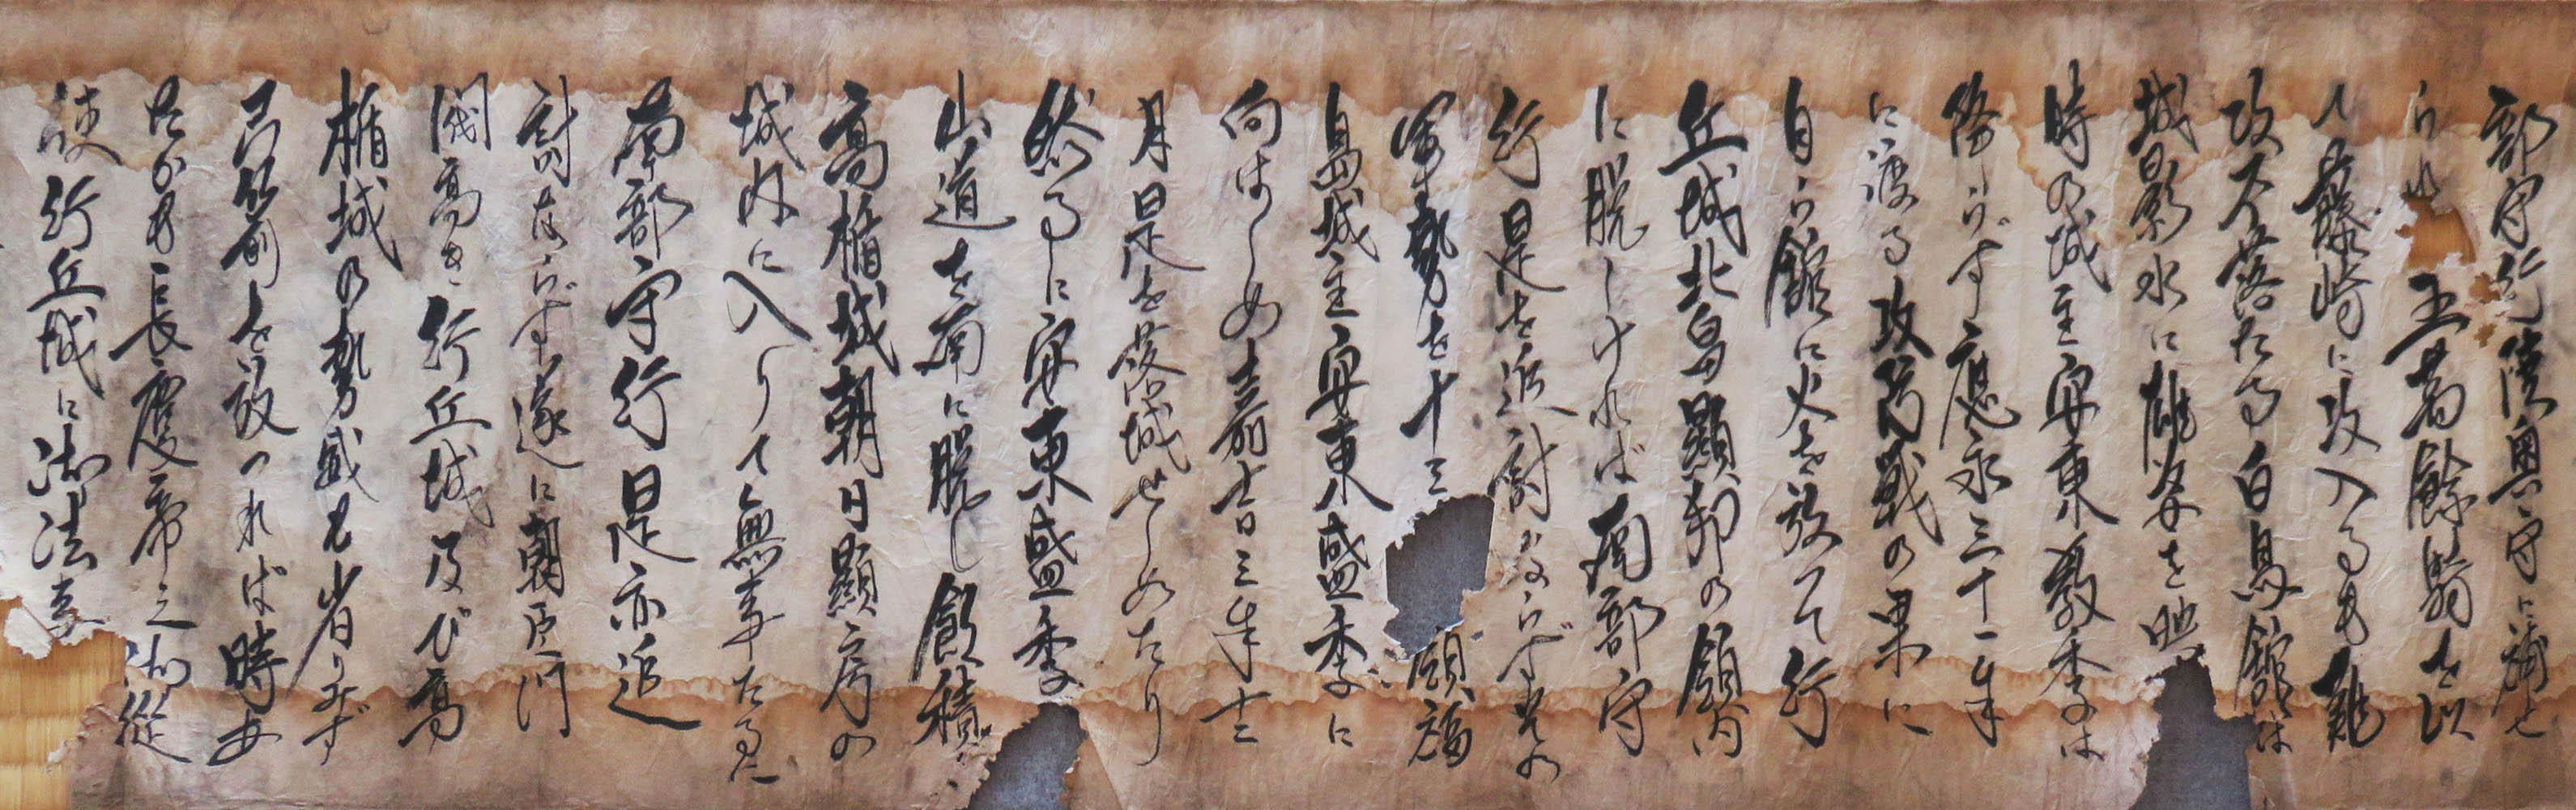 部守行陸奥守に補せ
られ
五萬餘騎を以
て藤崎に攻入るも難
攻不落たる白鳥館は
城影水に雄姿を映
時の城主安東教季は
降らず應永三十一年
に渡る攻防戦の果に
自ら館に火を放って行
丘城北畠顯邦の領内
に脱しければ南部守
行是を追討ならず其の
軍勢を十三
福
島城主安東盛季に
向はしめ嘉吉三年十二
月是を落城せしめたり
然るに安東盛季
山道を南に脱し飯積
高楯城朝日顯房の
城内に入りて無事たるに
南部守行是亦追
討ならず遂に朝臣門
閥高き行丘城及び高
楯城の勢威も省りみず
弓箭を放つれば時
たかも長慶帝之御従
使行丘城に御法